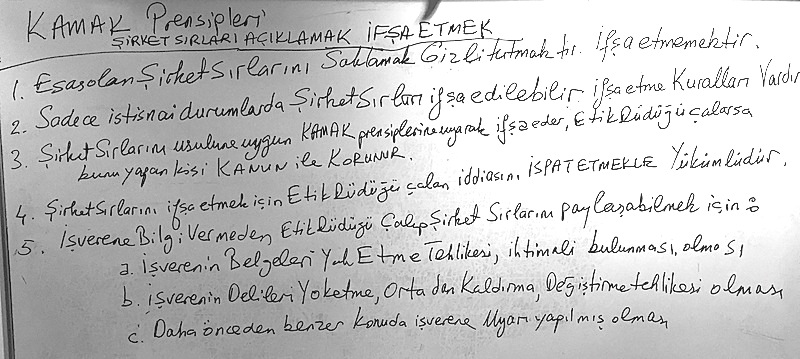 KAMAK Prensipleri
ŞİRKET SIRLARI AÇIKLAMAK İFŞA ETMEK
1. Esas olan Şirket Sırlarını Saklamak Gizli tutmaktır. İfşa etmemektir.
2. Sadece istisnai durumlarda Şirket Sırları ifşa edilebilir ifşa etme Kuralları Vardır
3. Şirket Sırlarını usulune uygun KAMAK prensiplerine uyarak ifşa eder, Etik Düdüğü çalarsa
bunu yapan kişi KANUN ile KORUNUR.
4. Şirket Sırlarını ifşa etmek için Etik Düdüğü çalan iddiasını İSPAT ETMEKLE Yükümlüdür.
5. İşverene Bilgi Vermeden Etik Düdüğü Çalıp Şirket Sırlarını paylaşabilmek için :
a. İşverenin Belgeleri Yok Etme Tehlikesi, ihtimali bulunması, olması
b. işverenin Delileri Yoketme, Ortadan Kaldırma, Değiştirme tehlikesi olması
c. Daha önceden benzer konuda işverene Uyarı yapılmış olması